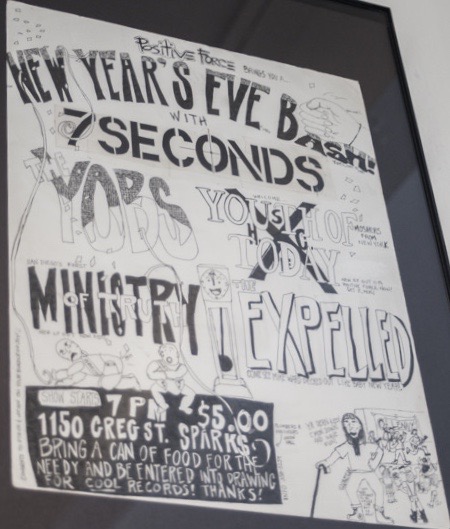 Positive Force
BRINGS YOU A
NEW YEAR'S EVE BASH!
WITH
7 SECONDS
THE
YOBS
YOUTH OF
TODAY
USHC
MOSHERS
FROM
NEW YORK
MINISTRY
OF TRUTH
THE
EXPELLED
SHOW STARTS
7 PM $5.00
1150 GREG ST. SPARKS.
BRING A CAN OF FOOD FOR THE
NEEDY AND BE ENTERED INTO DRAWING
FOR COOL RECORDS! THANKS!